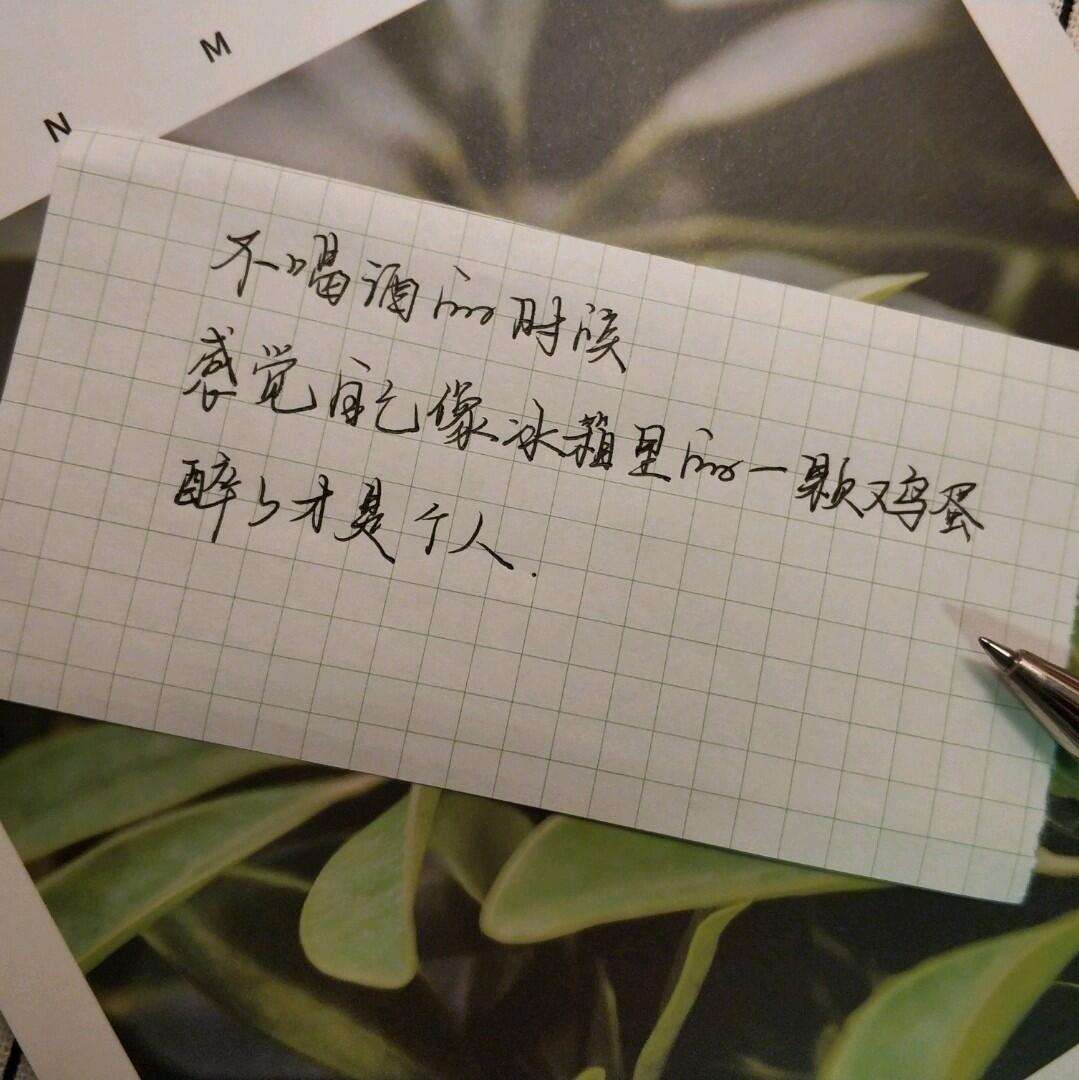 M
N
不喝酒的时候
感觉自己像冰箱里的一颗鸡蛋
醉了才是个人.